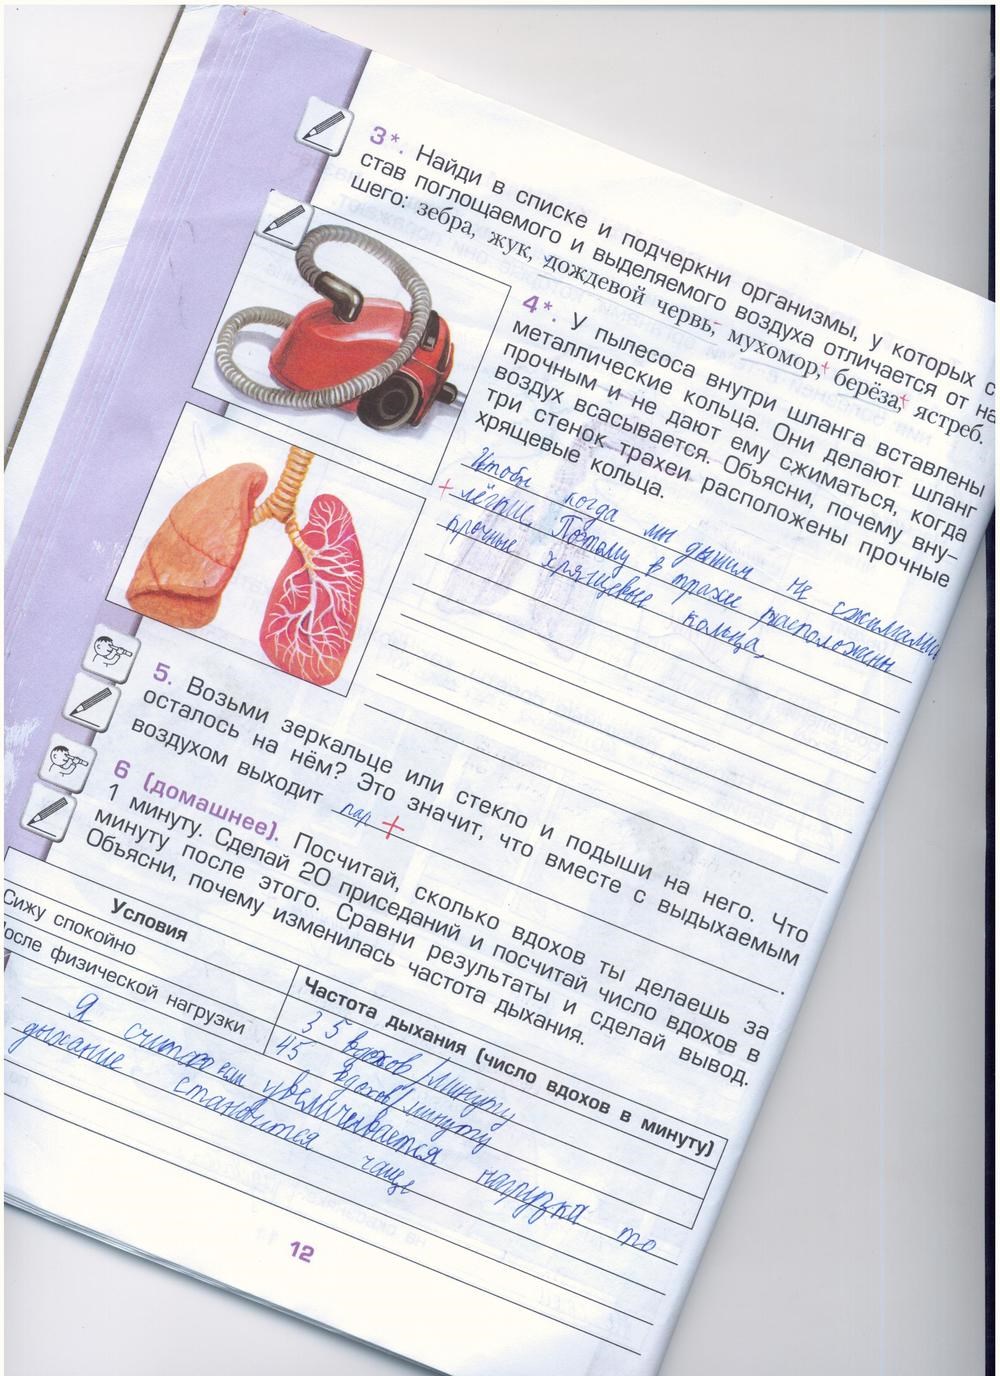 3*. Найди в списке и подчеркни организмы, у которых с
став поглощаемого и выделяемого воздуха отличается от на
шего: зебра, жук, дождевой червь, мухомор, берёза, ястреб.
4*. У пылесоса внутри шланга вставлены
металлические кольца. Они делают шланг
прочным и не дают ему сжиматься, когда
воздух всасывается. Объясни, почему вну–
три стенок трахеи расположены прочные
хрящевые кольца.
Чтобы когда мы дышим не сжимались
+ лёгкие. Поэтому в трахее расположены
прочные хрящевые кольца.
5. Возьми зеркальце или стекло и подыши на него. Что
осталось на нём? Это значит, что вместе с выдыхаемым
воздухом выходит пар + .
6 (домашнее). Посчитай, сколько вдохов ты делаешь за
1 минуту. Сделай 20 приседаний и посчитай число вдохов в
минуту после этого. Сравни результаты и сделай вывод.
Объясни, почему изменилась частота дыхания.
Условия
Частота дыхания (число вдохов в минуту)
Сижу спокойно
35 вдохов/минуту
осле физической нагрузки
45 вдохов/минуту
Я считаю если увеличивается нагрузка то
дыхание становится чаще
12